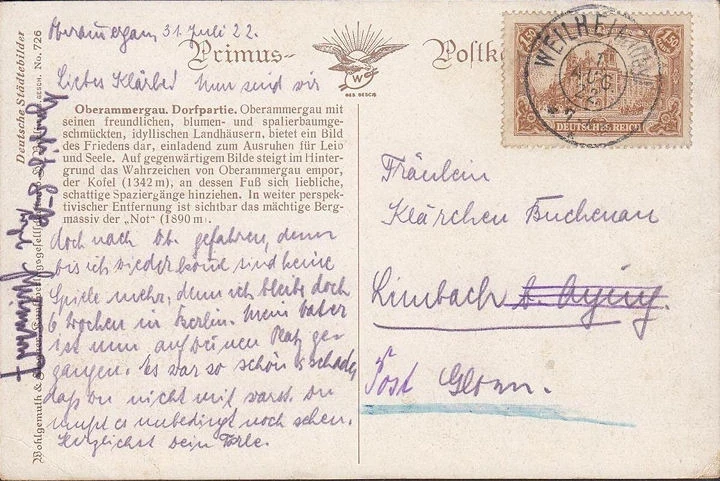 Oberammergau 31. Juli 22.
Primus-
Postk
GES. GESCH.
Liebes Klärchen! Nun sind wir
Oberammergau. Dorfpartie. Oberammergau mit
seinen freundlichen, blumen- und spalierbaumge-
schmückten, idyllischen Landhäusern, bietet ein Bild
des Friedens dar, einladend zum Ausruhen für Leib
und Seele. Auf gegenwärtigem Bilde steigt im Hinter-
grund das Wahrzeichen von Oberammergau empor,
der Kofel (1342 m), an dessen Fuß sich liebliche,
schattige Spaziergänge hinziehen. In weiter perspek-
tivischer Entfernung ist sichtbar das mächtige Berg-
massiv der „Not" (1890 m).
doch nach Ob. gefahren, denn
bis ich wiederkomme sind keine
Spiele mehr, denn ich bleibe doch
6 Wochen in Berlin. Mein Vater
ist nun auf deinen Platz ge-
gangen. Es war so schön, schade,
daß du nicht mit warst. Du
mußt es unbedingt noch sehen.
Herzlichst Dein
Deutsche Städtebilder
No. 726
Wohlgemuth &
1,50 1,50
DEUTSCHES REICH
WEILHEIM
AUG
22
Fräulein
Klärchen Buchenau
Limbach b. Aying.
Post Glonn.